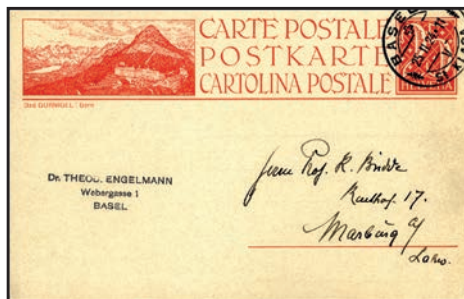 CARTE POSTALE
POSTKARTE
CARTOLINA POSTALE
BASEL
HELVETIA
Bad GURNIGEL: Bern
Dr. THEOD. ENGELMANN
Webergasse 1
BASEL
Herrn Prof. K. Budde
17.
Marburg a/
Lahn.